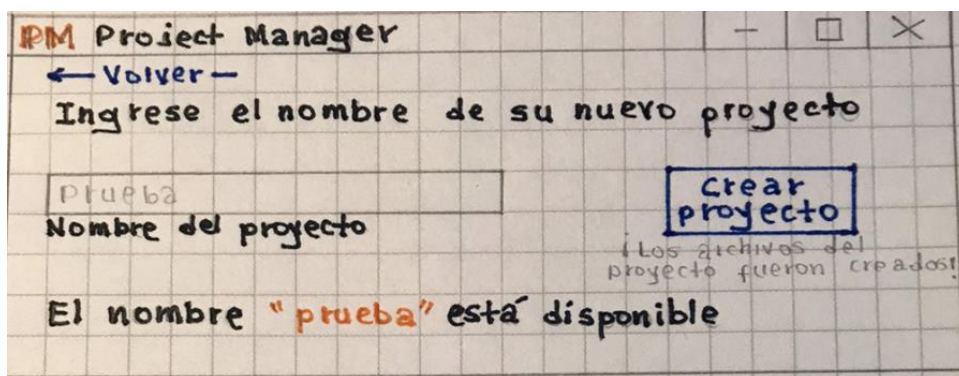 PM Project Manager
← Volver
Ingrese el nombre de su nuevo proyecto
prueba
Crear
proyecto
Nombre del proyecto
¡Los archivos del
proyecto fueron creados!
El nombre "prueba" está disponible